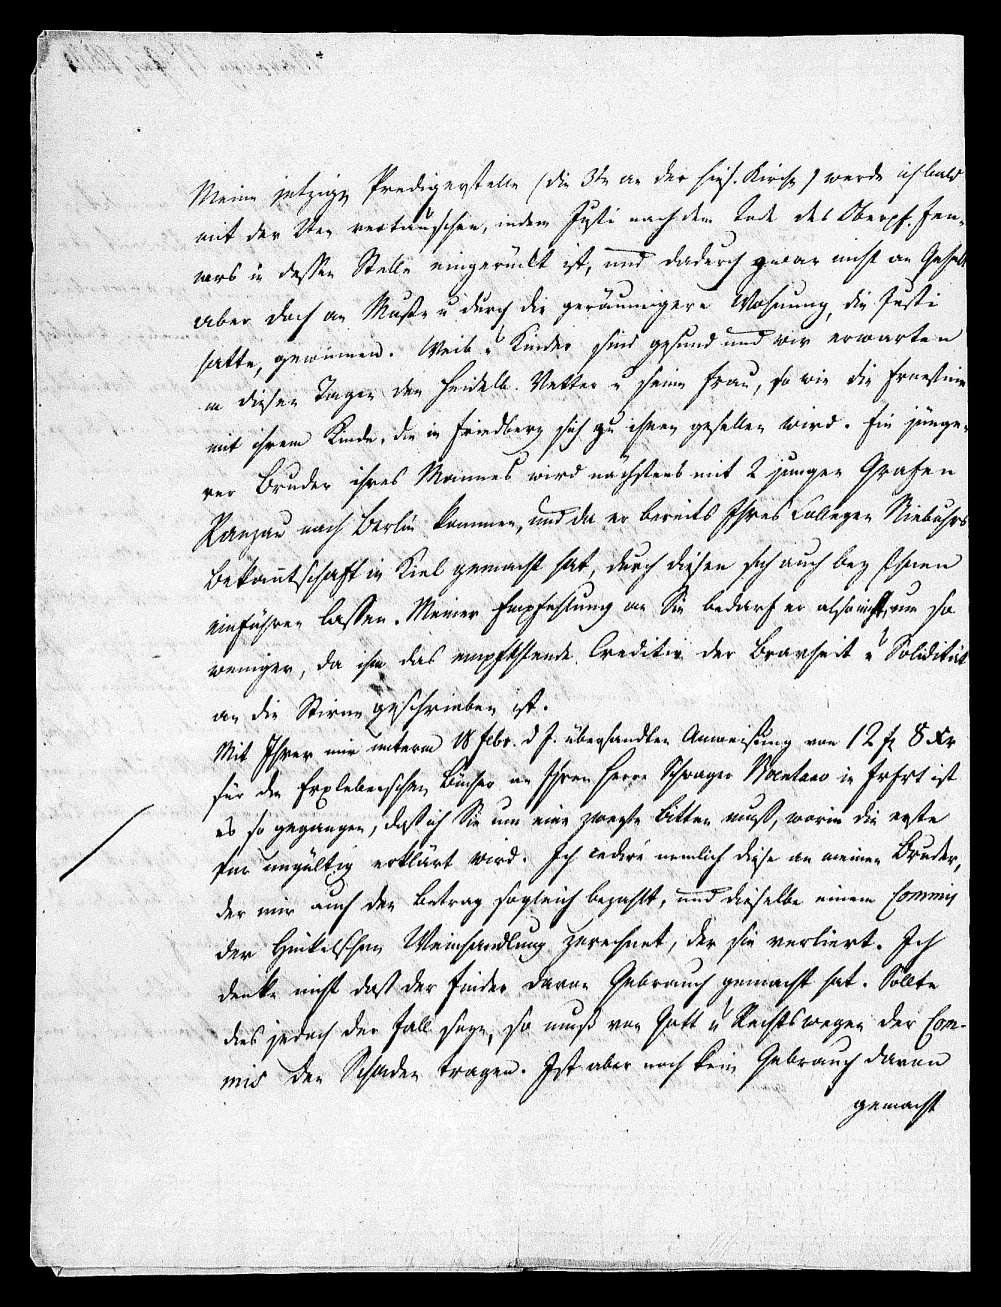 Meine jetzige Predigerstelle (die 3te an der hies. Kirche) werde ich bald
mit der 2ten vertauschen, indem Justi nach dem Tode des Oberpf. Fen-
ners in dessen Stelle eingerückt ist, und dadurch zwar nicht an Gehalt
aber doch an Muße u durch die geräumigere Wohnung, die Justi
hatte, gewinnen. Weib u Kinder sind gesund und wir erwarten
in diesen Tagen den Heidelb. Vetter u seine Frau, so wie die Ernestine
mit ihrem Kinde, die in Friedberg sich zu ihnen gesellen wird. Ein jünge-
rer Bruder ihres Mannes wird nächstens mit 2 jungen Grafen
Ranzau nach Berlin kommen, und da er bereits Ihres Collegen Niebuhrs
Bekanntschaft in Kiel gemacht hat, durch diesen sich auch bey Ihnen
einführen lassen. Meiner Empfehlung an Sie bedarf er also nicht, um so
weniger, da ihm das empfehlende Creditiv der Bravheit u Solidität
an die Stirne geschrieben ist.
Mit Ihrer mir unterm 18 Febr. d J. übersandten Anweisung von 12 f 8 Xr
für die Erxlebenschen Bücher an Ihren Herrn Schwager in Frfrt ist
es so gegangen, daß ich Sie um eine zweyte bitten muß, worin die erste
für ungültig erklärt wird. Ich cedire nemlich diese an meinen Bruder,
der mir auch den Betrag sogleich bezahlt, und dieselbe einem Commis
der Weinhandlung zurechnet, der sie verliert. Ich
denke nicht daß der Finder davon Gebrauch gemacht hat. Sollte
dies jedoch der Fall seyn, so muß von Gott u Rechtswegen der Com-
mis den Schaden tragen. Ist aber noch kein Gebrauch davon
gemacht